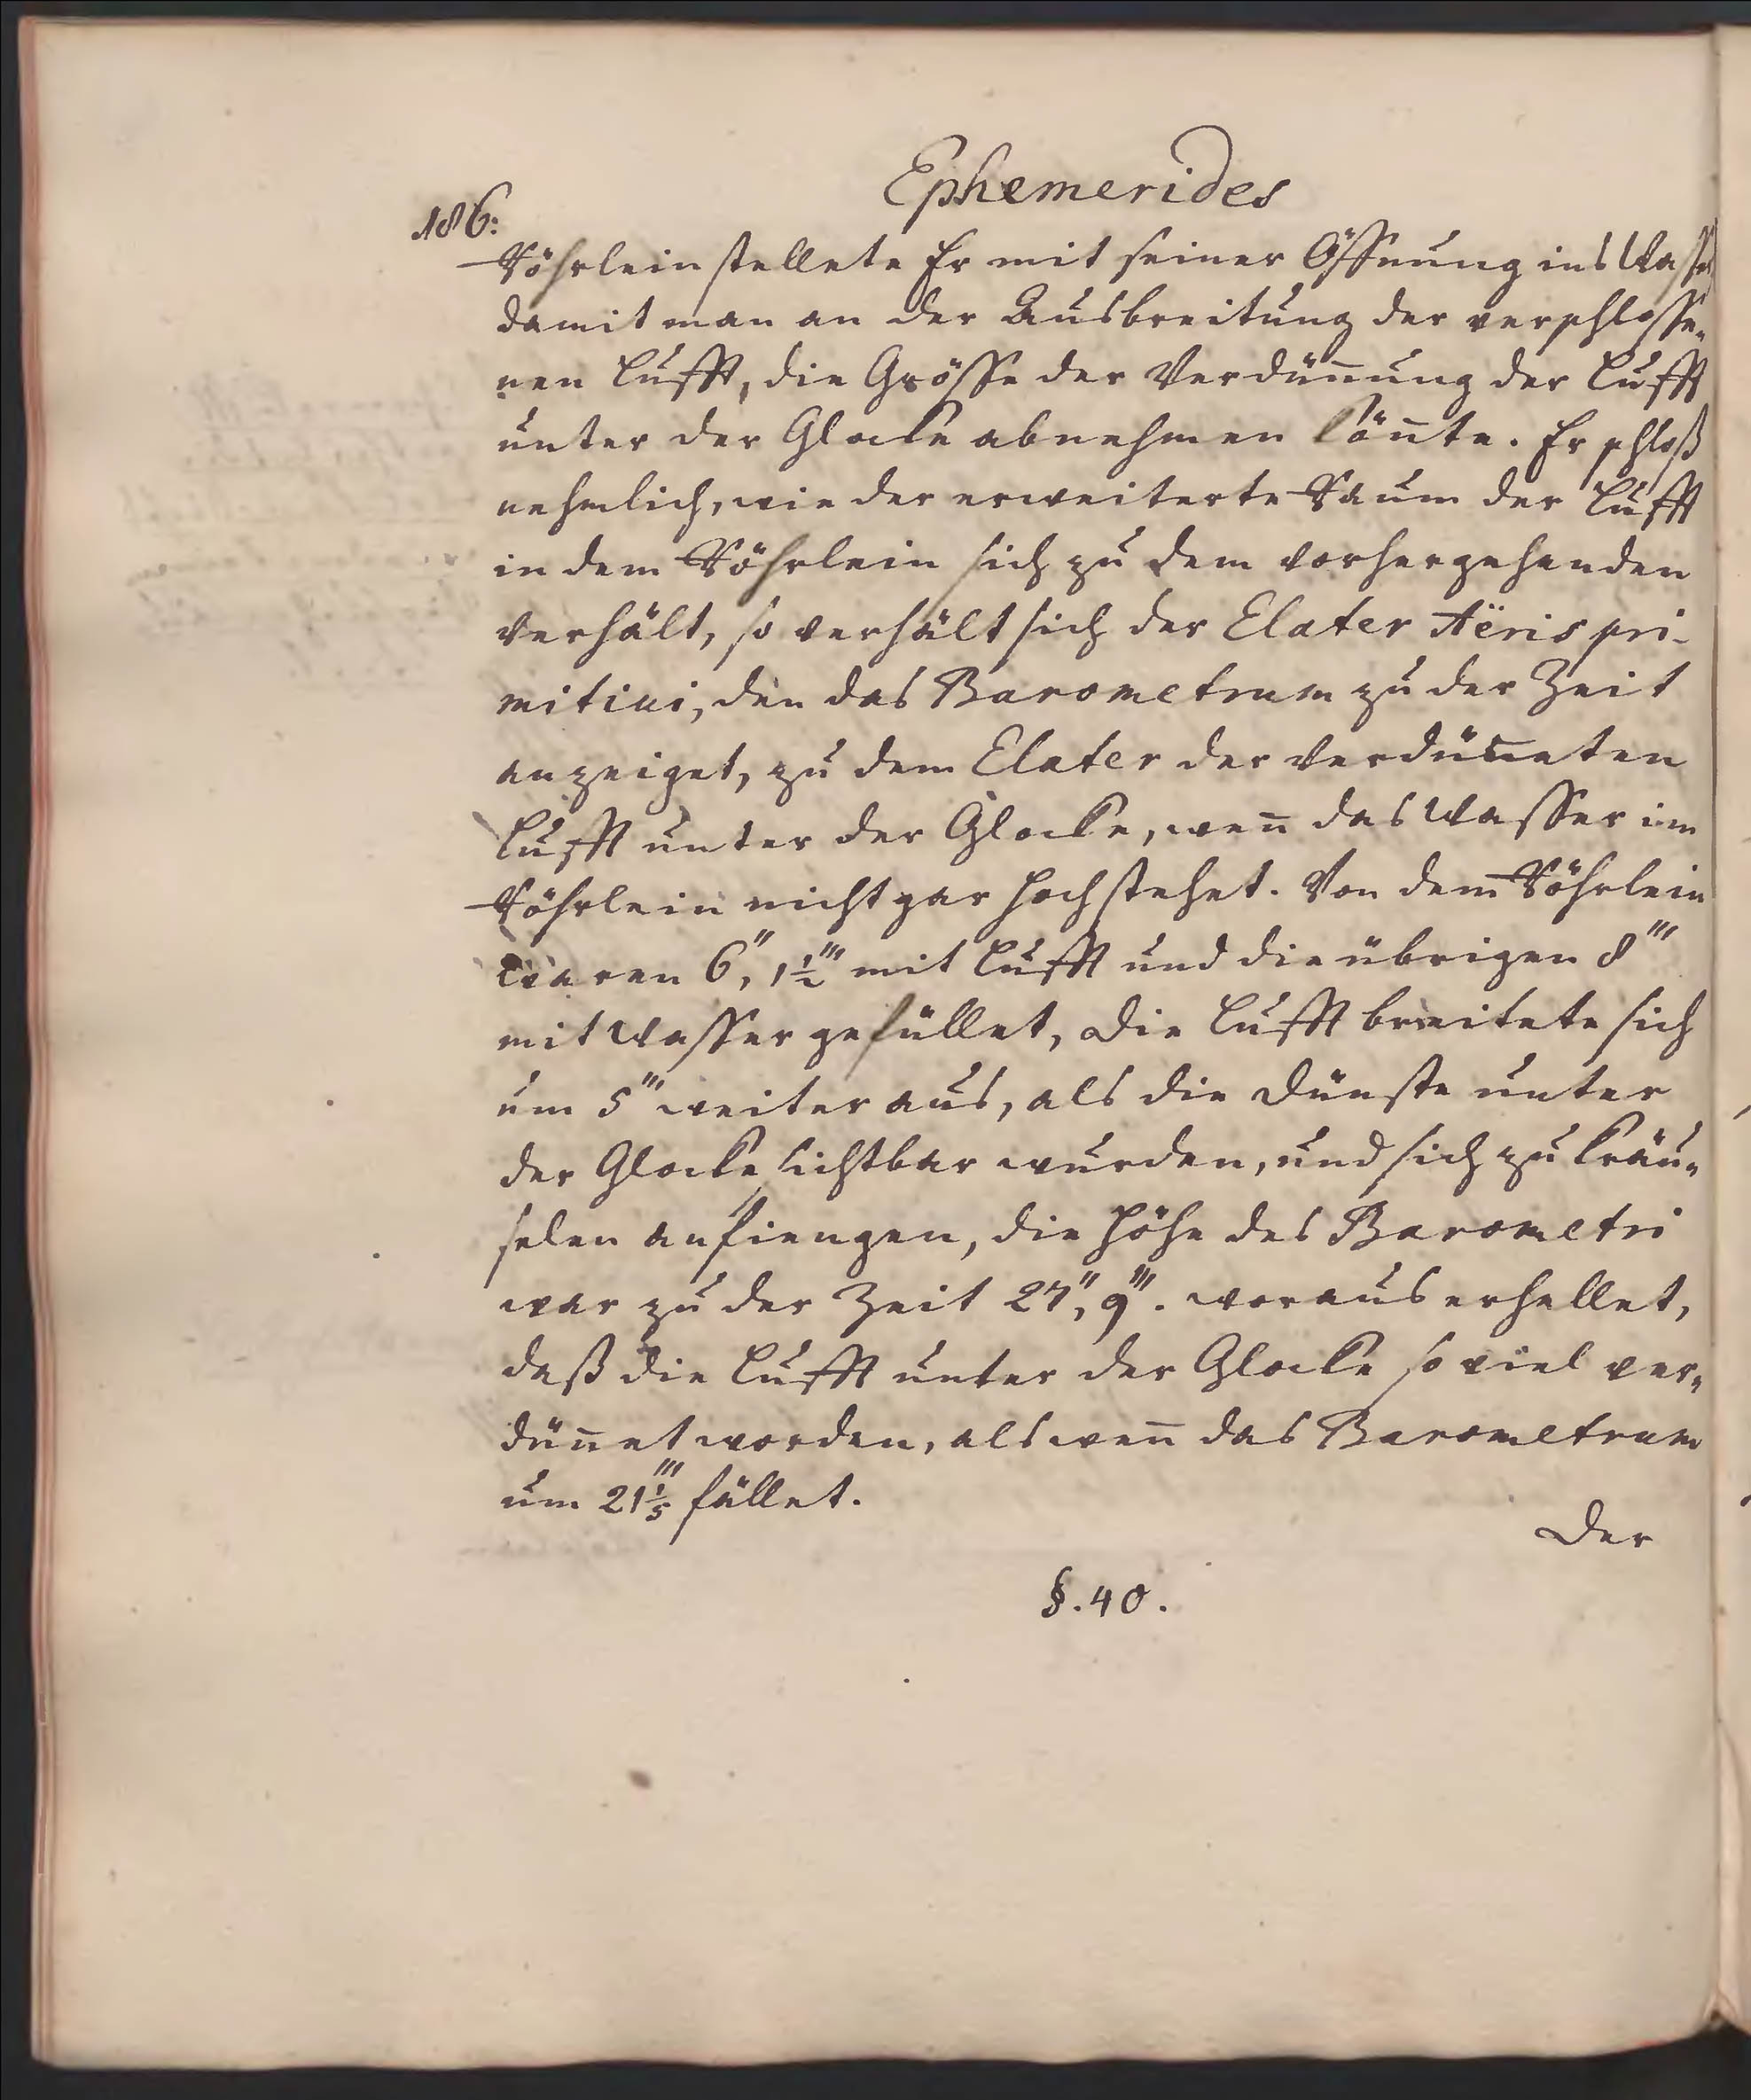 Ephemerides
186:
Röhrlein stellete Er mit seiner Öffnung ins Wasser
damit man an der Ausbreitung der verschlosse-
nen Lufft, die Grösse der Verdün̄ung der Lufft
unter der Glocke abnehmen kön̄te. Er schloß
nehmlich, wie der erweiterte Raum der Lufft
in dem Röhrlein sich zu dem vorhergehenden
verhält, so verhält sich der Elater Aëris pri-
mitiui, den das Barometrum zu der Zeit
anzeiget, zu dem Elater der verdün̄eten
Lufft unter der Glocke, wen̄ das Wasser im
Röhrlein nicht gar hoch stehet. Von dem Röhrlein
waren 6", 1½''' mit Lufft und die übrigen 8'''
mit Wasser gefüllet, die Lufft breitete sich
um 5''' weiter aus, als die Dünste unter
der Glocke sichtbar wurden, und sich zu kräu-
selen anfiengen, die Höhe des Barometri
war zu der Zeit 27", 9'''. woraus erhellet,
daß die Lufft unter der Glocke so viel ver-
dün̄et worden, als wen̄ das Barometrum
um 21⅕''' fället.
Der
§. 40.